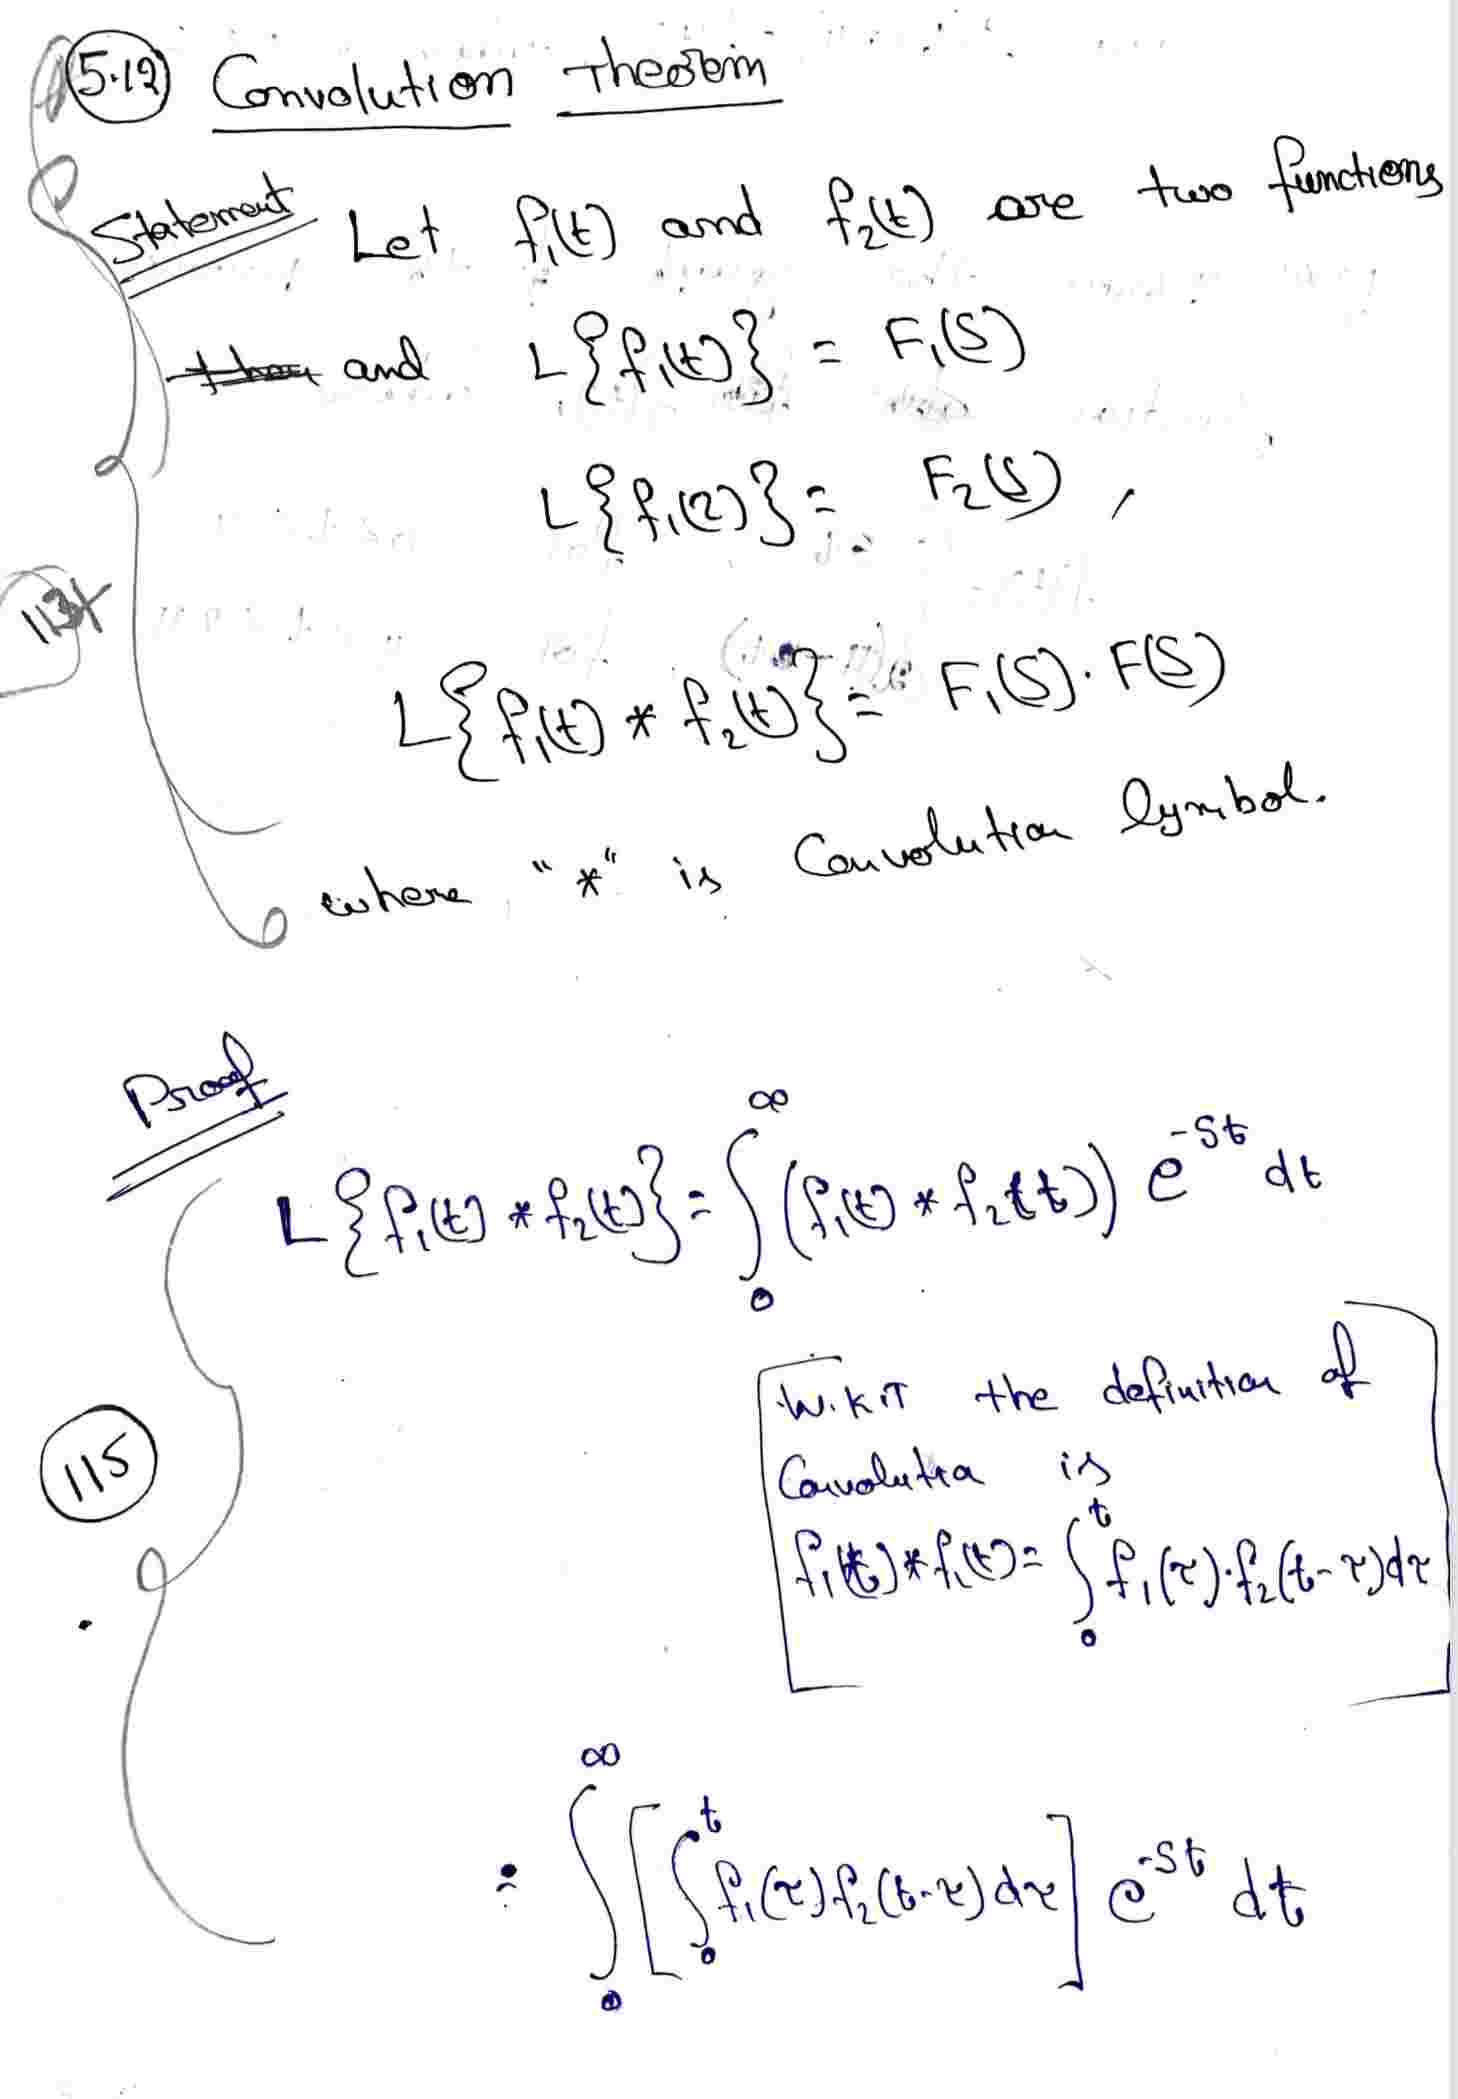 5.12 Convolution Theorem
Statement Let f₁(t) and f₂(t) are two functions
and L{f₁(t)} = F₁(S)
L{f₁(2)} = F₂(S),
L{f₁(t) * f₂(t)} = F₁(S). F(S)
where "*" is Convolution Symbol.
Proof
L{f₁(t) * f₂(t)} = ∫₀^∞ (f₁(t) * f₂(t)) e^-St dt
115
W.K.T the definition of
Convolution is
f₁(t) * f₁(t) = ∫₀^t f₁(τ).f₂(t-τ)dτ
= ∫₀^∞ [∫₀^t f₁(τ) f₂(t-τ) dτ] e^-St dt